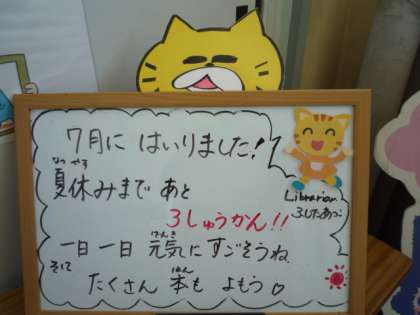 7月に はいりました!
なつ やす
夏休みまで あと
3しゅうかん!!
げんき
一日一日 元気に すごそうね
そして
ほん
たくさん 本も よもう♡
Librarian